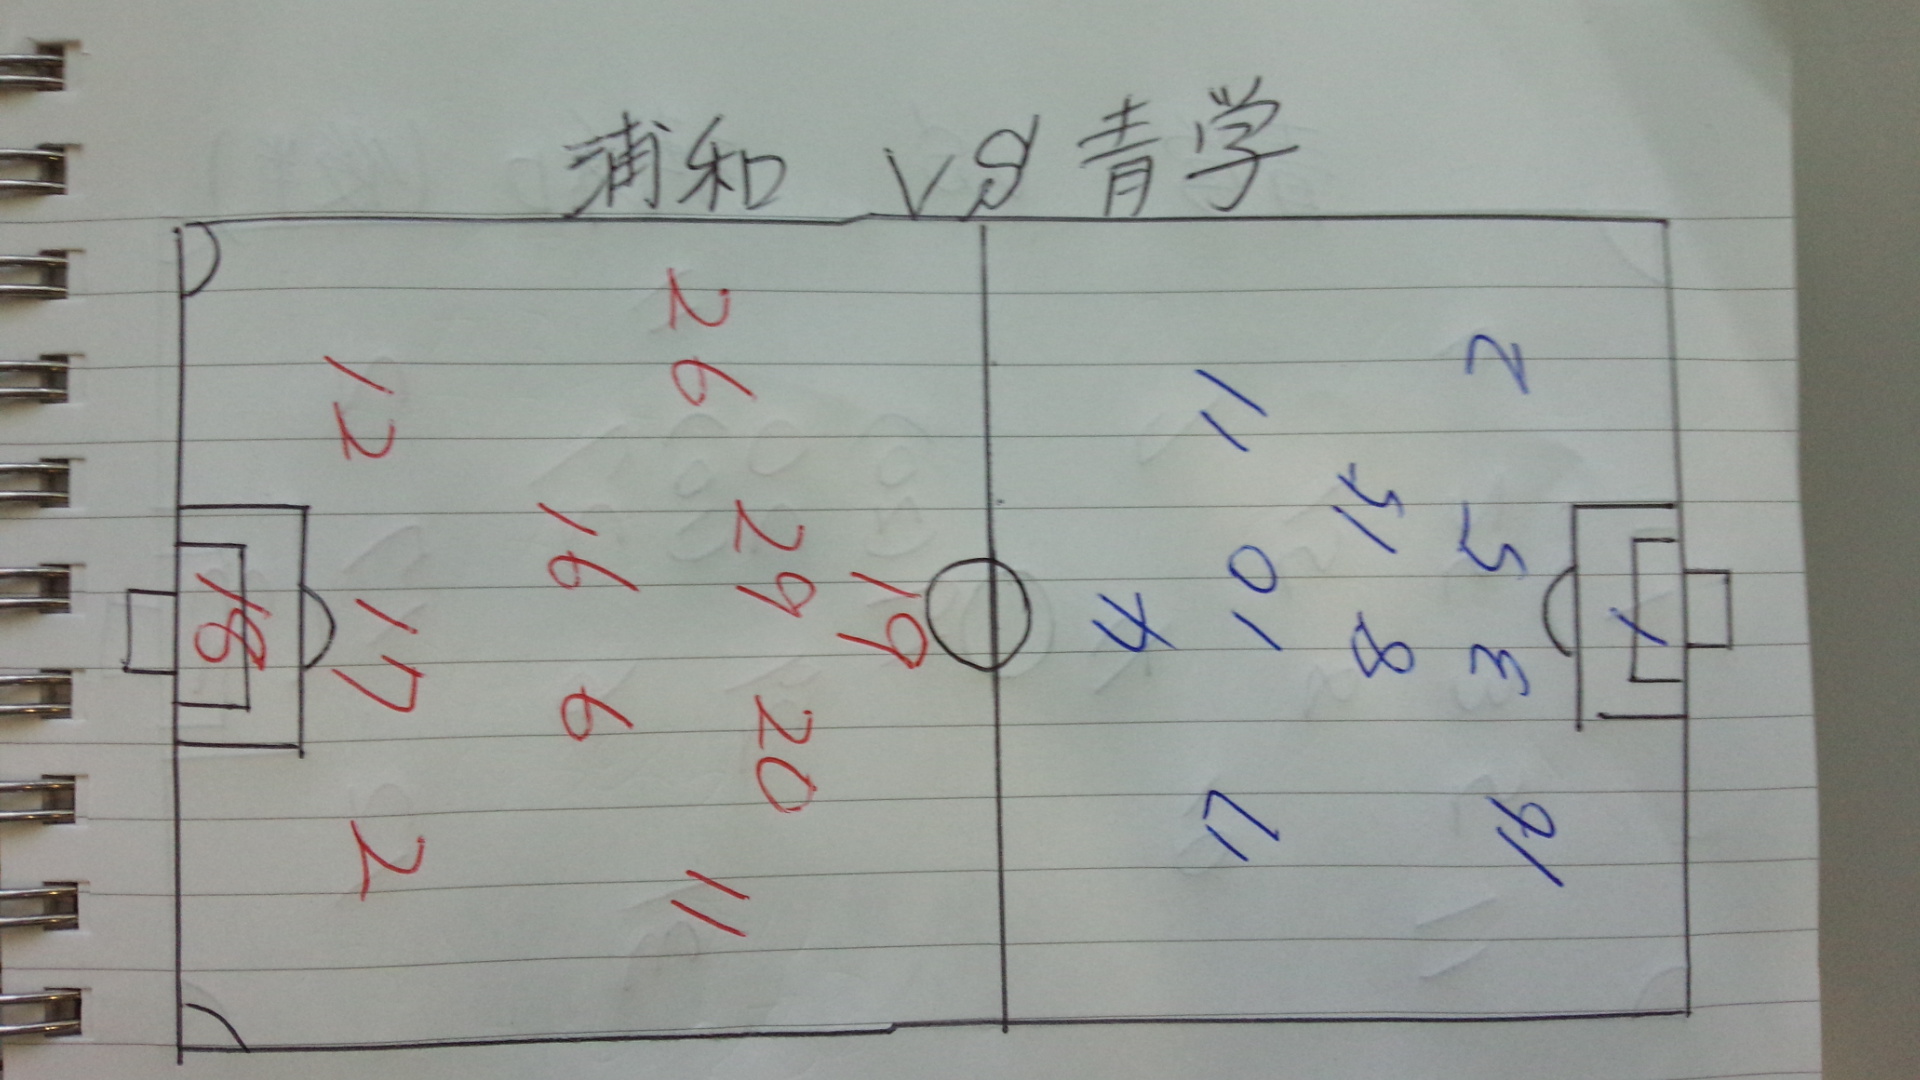 浦和 VS 青学
18
12
17
2
16
6
26
29
20
11
19
4
11
10
17
15
8
2
5
3
16
1